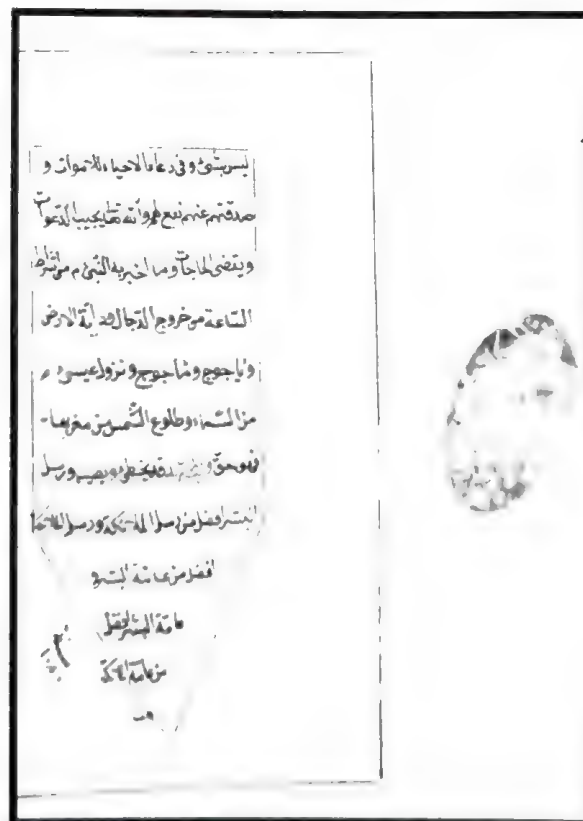 ليس بشئ وفى دعاء الاحياء للاموات و
صدقتهم عنهم نفع لهم والله تعا يجيب الدعوات
ويقضى الحاجات وما اخبر به النبىء م من اشراط
الساعة من خروج الدجال ودابة الارض
وياجوج وماجوج ونزول عيسى ء م
من السماء وطلوع الشمس من مغربها
فهو حق والمجتهد قد يخطئ ويصيب ورسل
البشر افضل من رسل الملائكة ورسل الملائكة
افضل من عامة البشر و
عامة البشر افضل
من عامة الملائكة